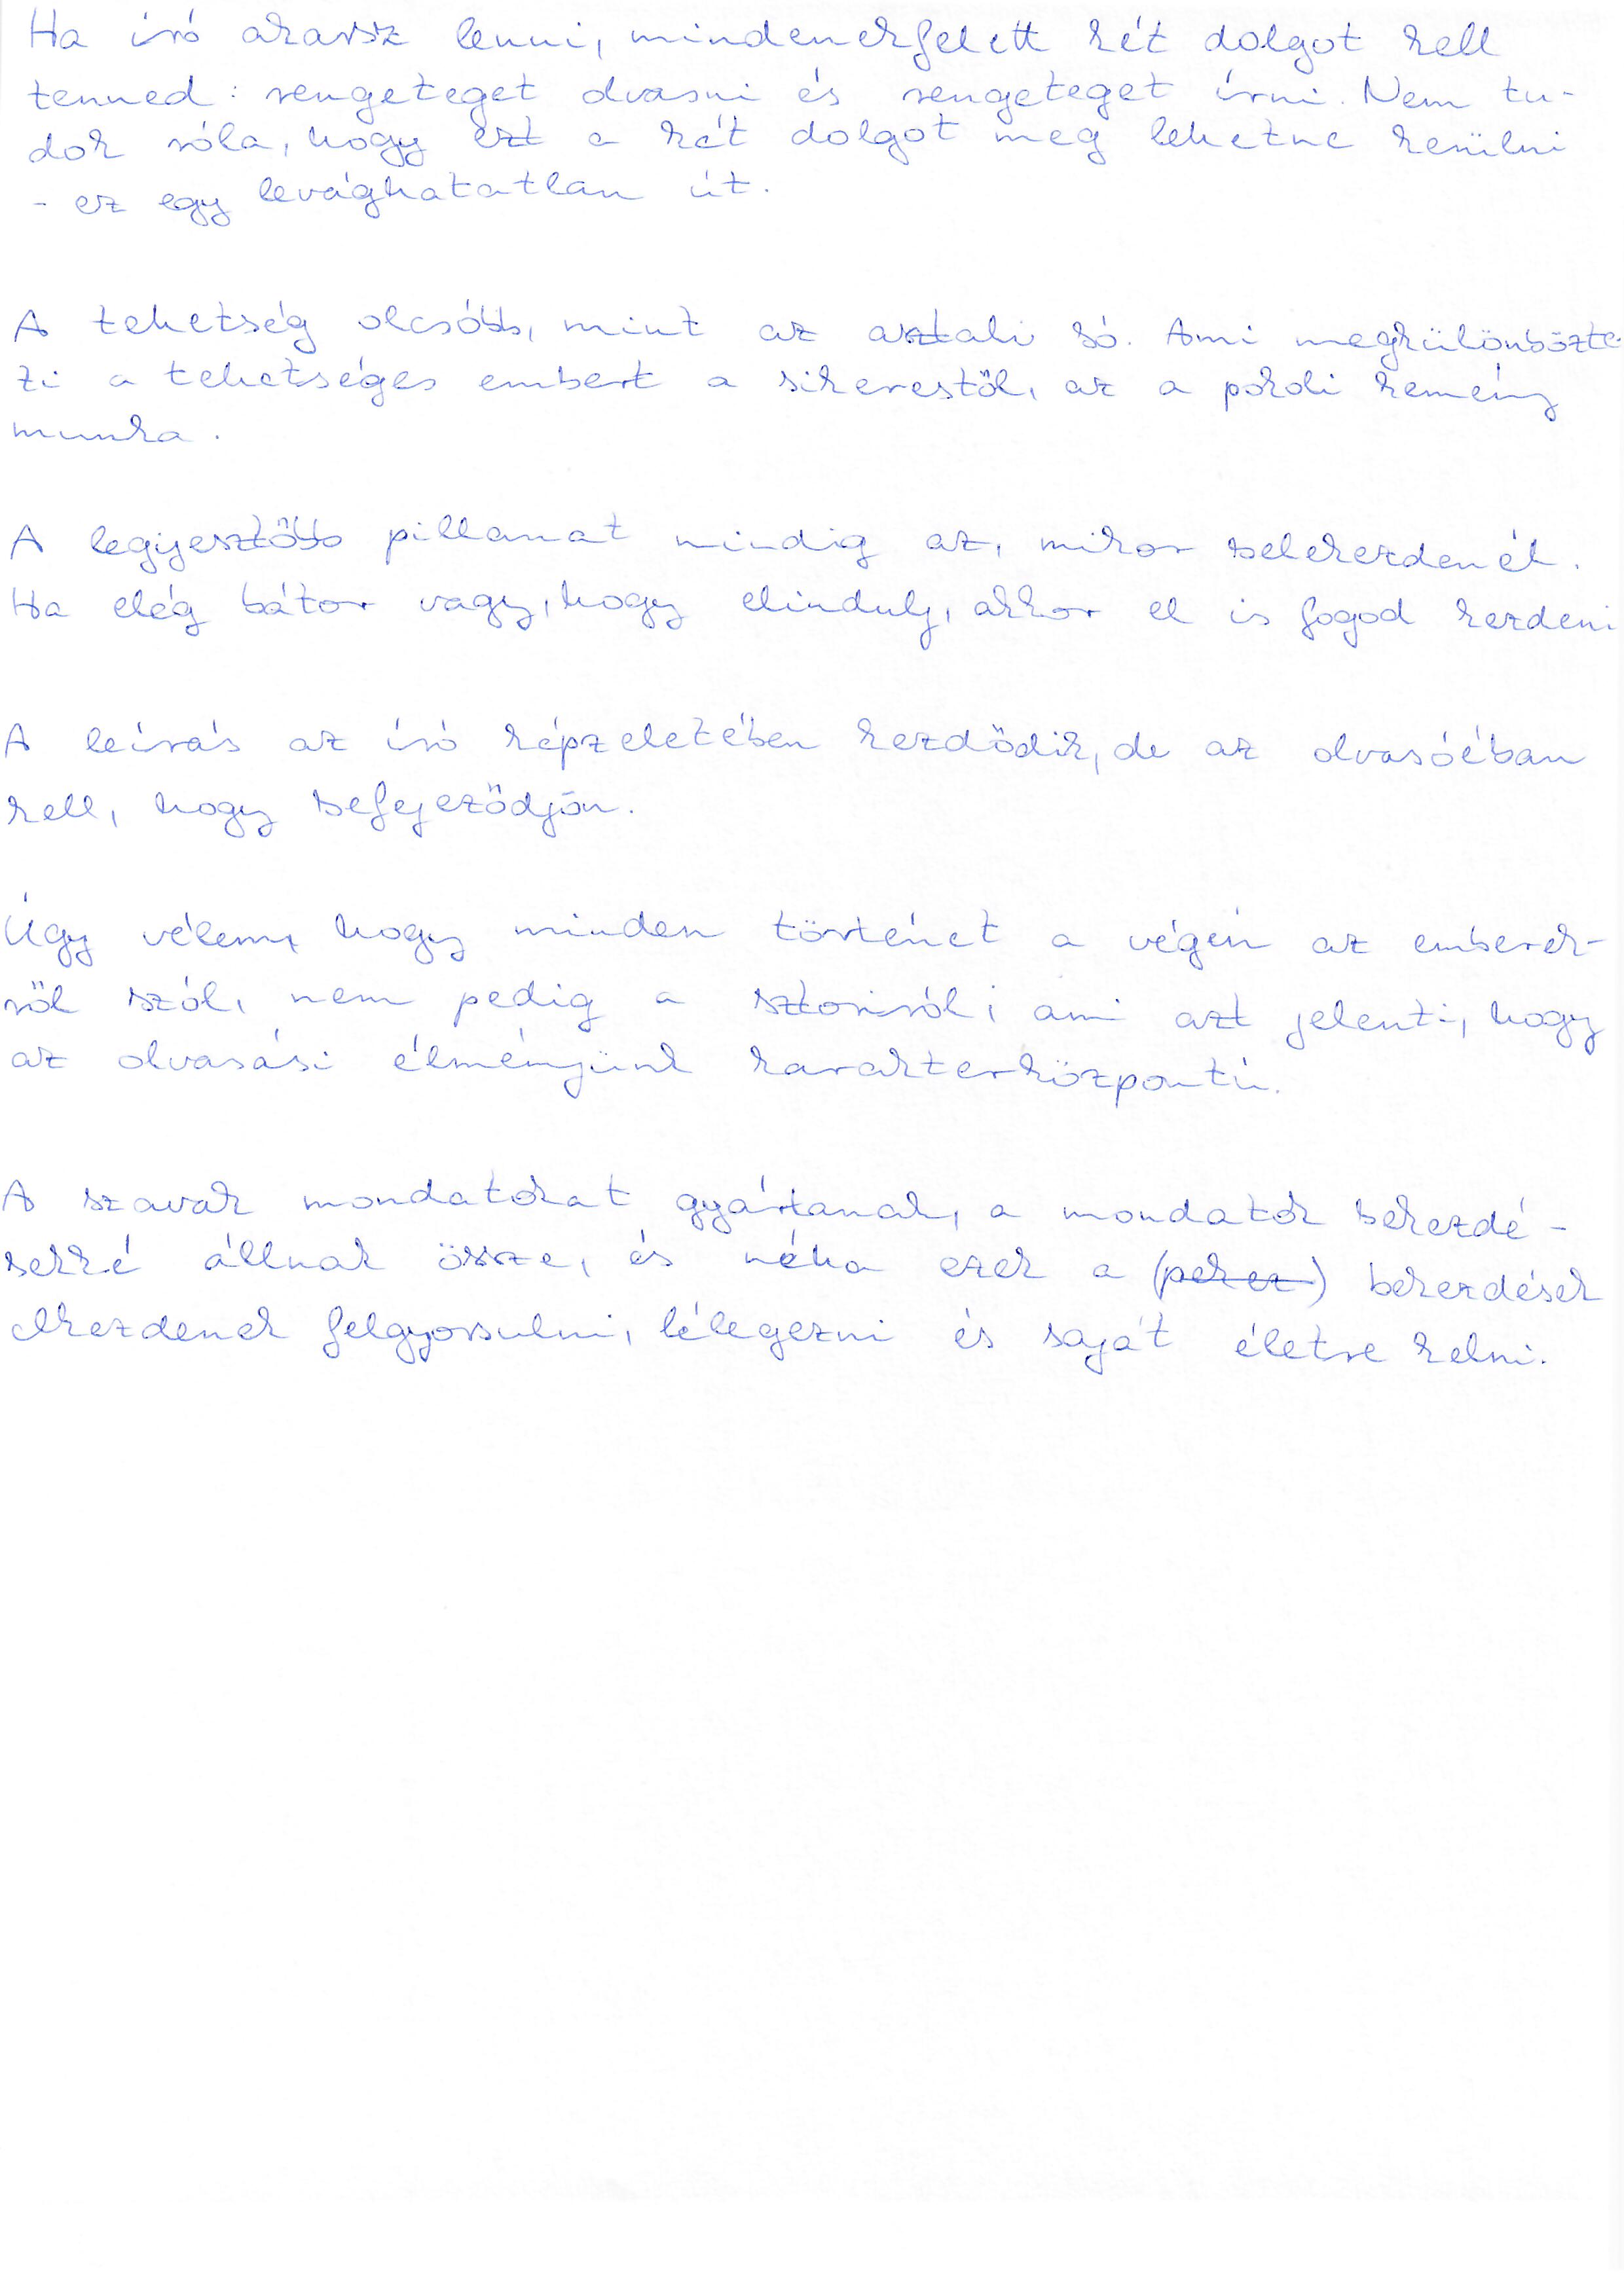 Ha író akarsz lenni, mindenekfelett két dolgot kell
tenned: rengeteget olvasni és rengeteget írni. Nem tu-
dok róla, hogy ezt a két dolgot meg lehetne kerülni
- ez egy levághatatlan út.
A tehetség olcsóbb, mint az asztali só. Ami megkülönbözte-
ti a tehetséges embert a sikerestől, az a pokoli kemény
munka.
A legijesztőbb pillanat mindig az, mikor belekezdenél.
Ha elég bátor vagy, hogy elindulj, akkor el is fogod kezdeni
A leírás az író képzeletében kezdődik, de az olvasóéban
kell, hogy befejeződjön.
Úgy vélem, hogy minden történet a végén az emberek-
ről szól, nem pedig a sztoriról; ami azt jelenti, hogy
az olvasási élményünk karakterközpontú.
A szavak mondatokat gyártanak, a mondatok bekezdé-
sekké állnak össze, és néha ezek a (pekez) bekezdések
elkezdenek felgyorsulni, lélegezni és saját életre kelni.